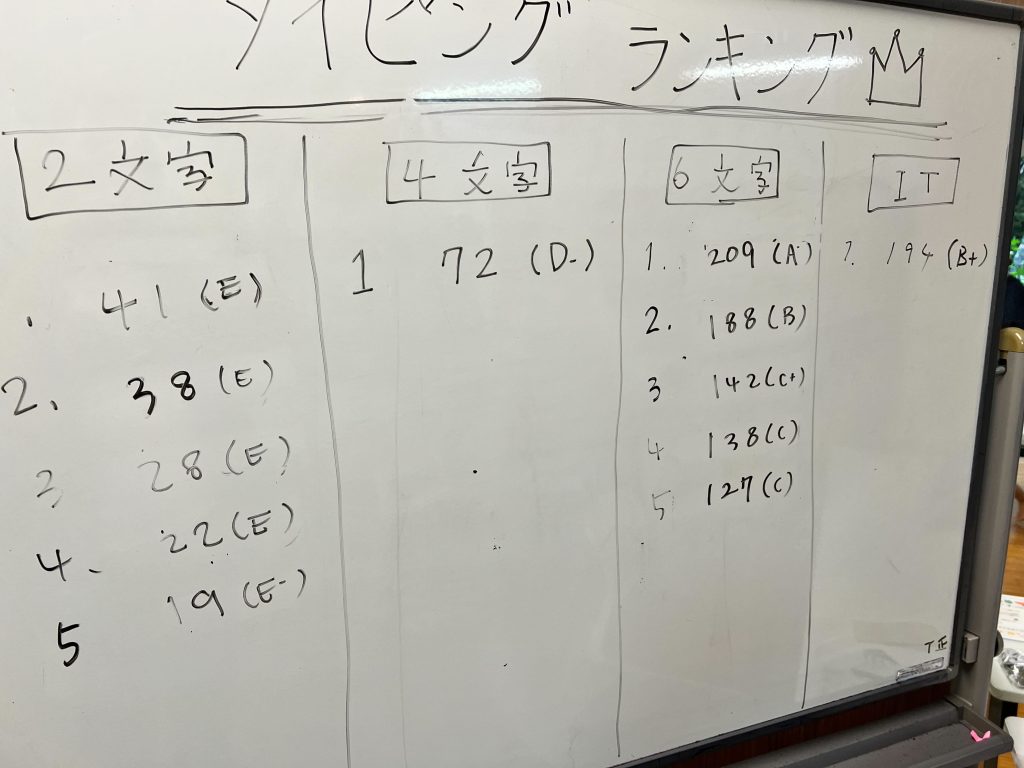 タイピング ランキング
2文字
. 41 (E)
2. 38 (E)
3 28 (E)
4. 22 (E)
5 19 (E-)
4文字
1 72 (D-)
6文字
1. 209 (A-)
2. 188 (B)
3 142 (C+)
4 138 (C)
5 127 (C)
IT
194 (B+)
T正